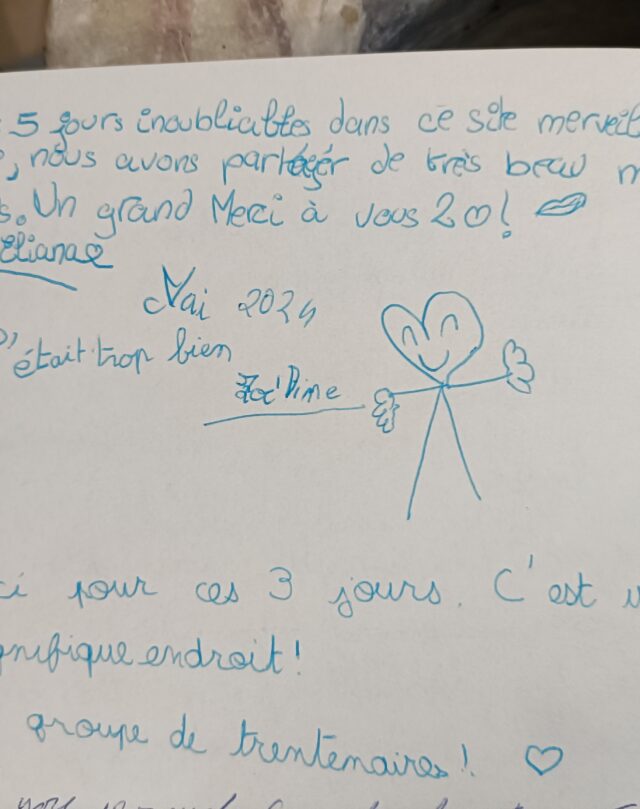 5 jours inoubliables dans ce site merveil
, nous avons partagér de très beau m
s. Un grand Merci à vous 2 ♡!
éliane
Mai 2024
était trop bien
ci pour ces 3 jours. C'est u
gnifique endroit!
groupe de trentenaires! ♡